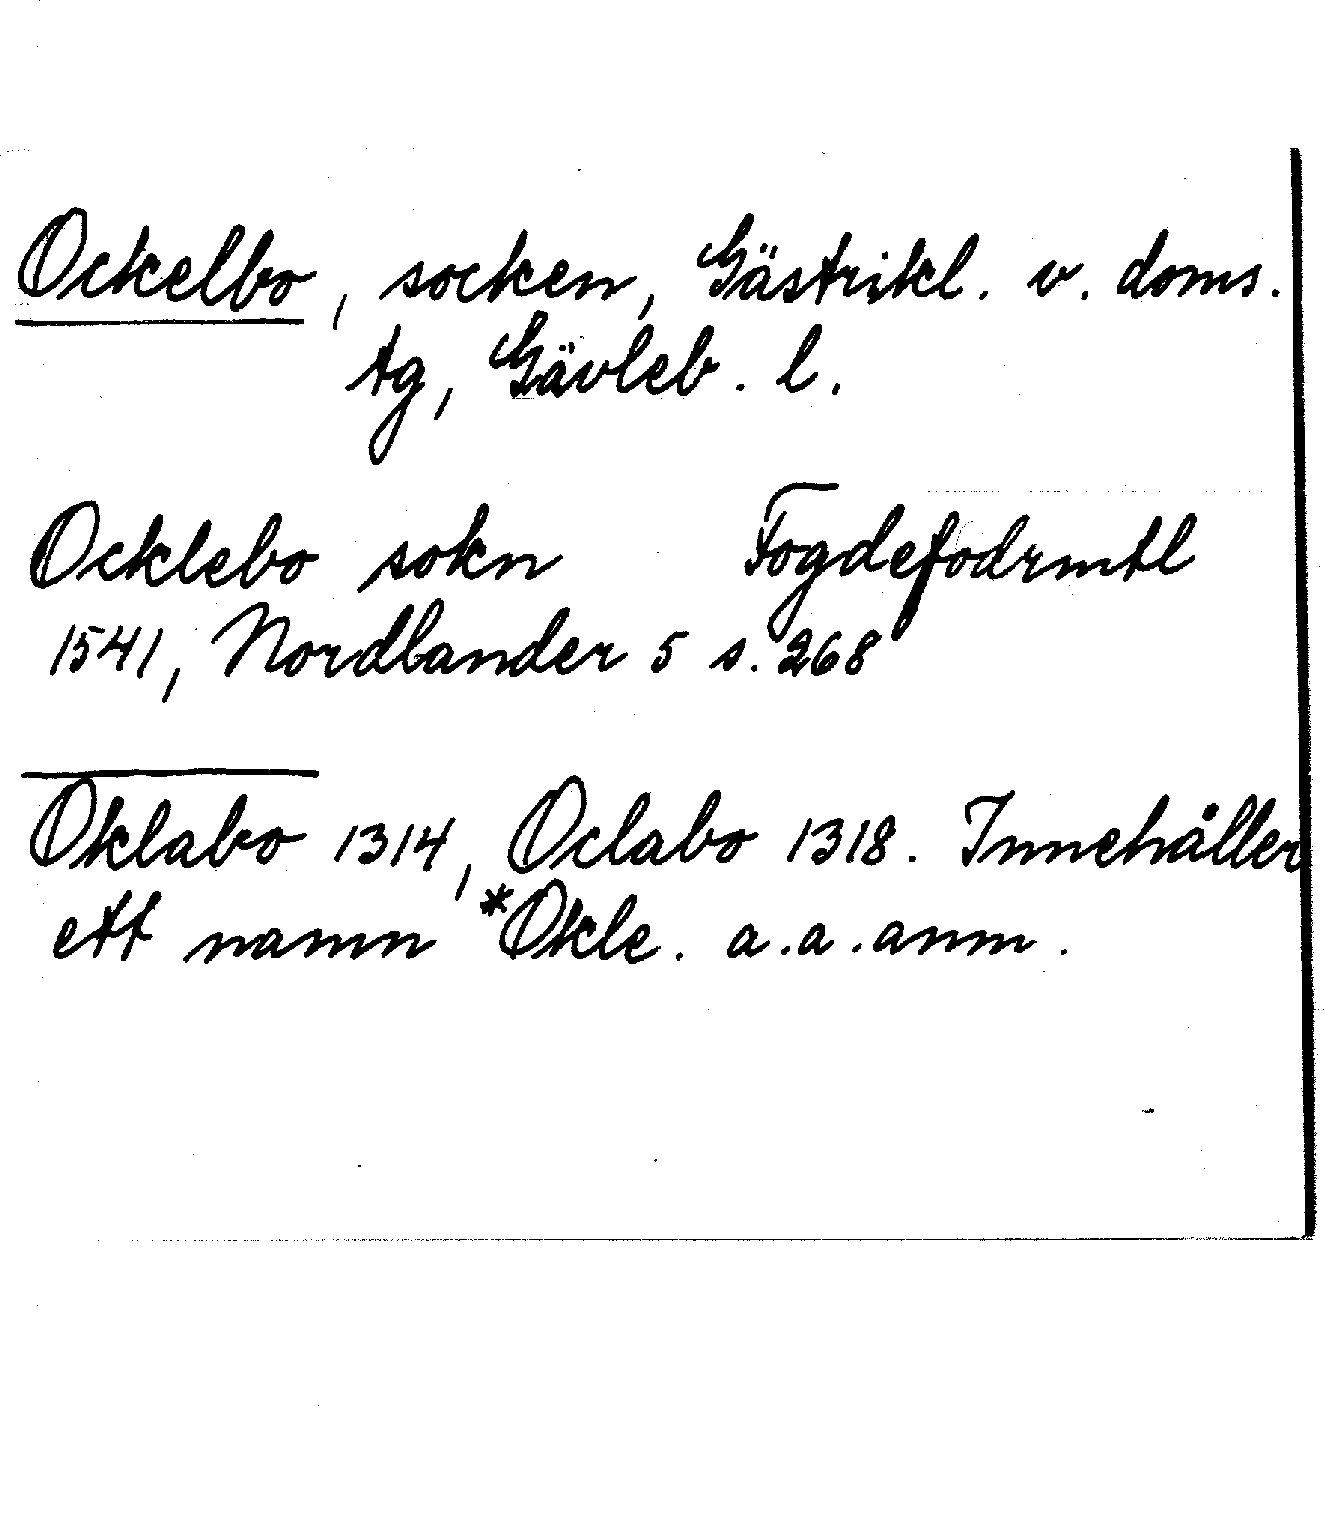 Ockelbo, socken, Gästrikl. v. doms.
tg, Gävleb. l.
Ocklebo sokn Fogdefodrmtl
1541, Nordlander 5 s. 268
Oklabo 1314, Oclabo 1318. Innehåller
ett namn *Okle. a.a. anm.